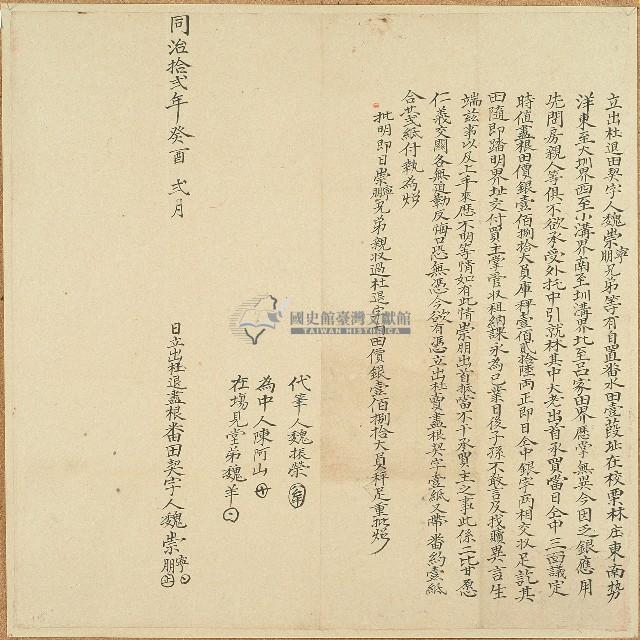 立出杜退田契字人魏崇寧朋兄弟等有自置番水田壹段址在校栗林庄東南勢
洋東至大圳界西至小溝界南至圳溝界北至呂家田界歷掌無異今因乏銀應用
先問房親人等俱不欲承受外托中引就林其中大老出首承買當日仝中三面議定
時值盡根田價銀壹佰捌拾大員庫秤壹佰貳拾陸兩正即日仝中銀字兩相交收足訖其
田隨即踏明界址交付買主掌管收租納課永為己業日後子孫不敢言及找贖異言生
端茲事以反上手來歷不明等情如有此情崇朋出首抵當不干承買主之事此係二比甘愿
仁義交關各無迫勒反悔口恐無憑今欲有憑立出杜賣盡根契字壹紙又帶番約壹紙
合共弍紙付執為炤
批明即日崇寧朋兄弟親收過杜退字內田價銀壹佰捌拾大員秤足重批炤
代筆人魏振榮
為中人陳阿山
在塲見堂弟魏羊
日立出杜退盡根番田契字人魏崇寧朋
同治拾弍年癸酉弍月
國史館臺灣文獻館
TAIWAN HISTORICA